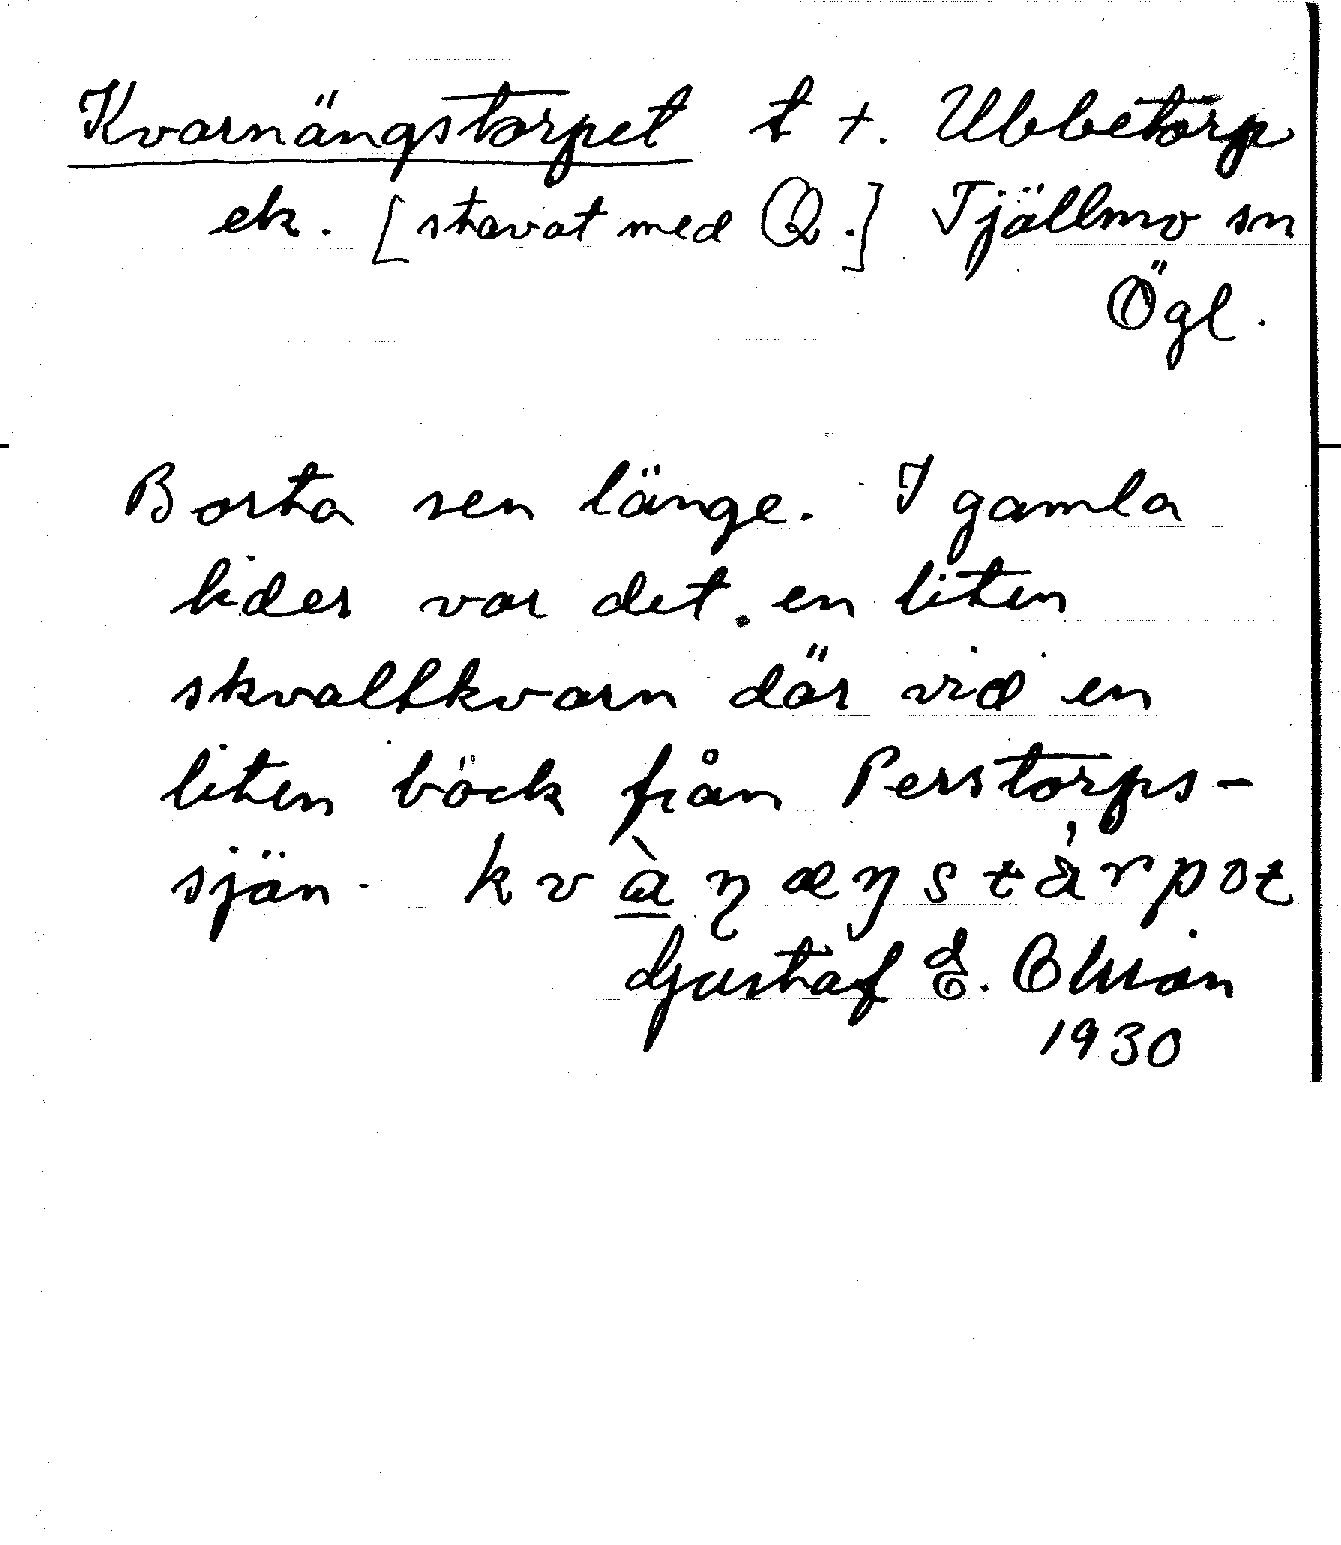 Kvarnängstorpet t +. Ubbetorp
ek. [stavat med Q.] Tjällmo sn
Ögl.
Borta sen länge. I gamla
tider var det en liten
skvaltkvarn där vid en
liten böck från Perstorps-
sjön. kvàŋæŋstårpət
Gustaf E.
1930